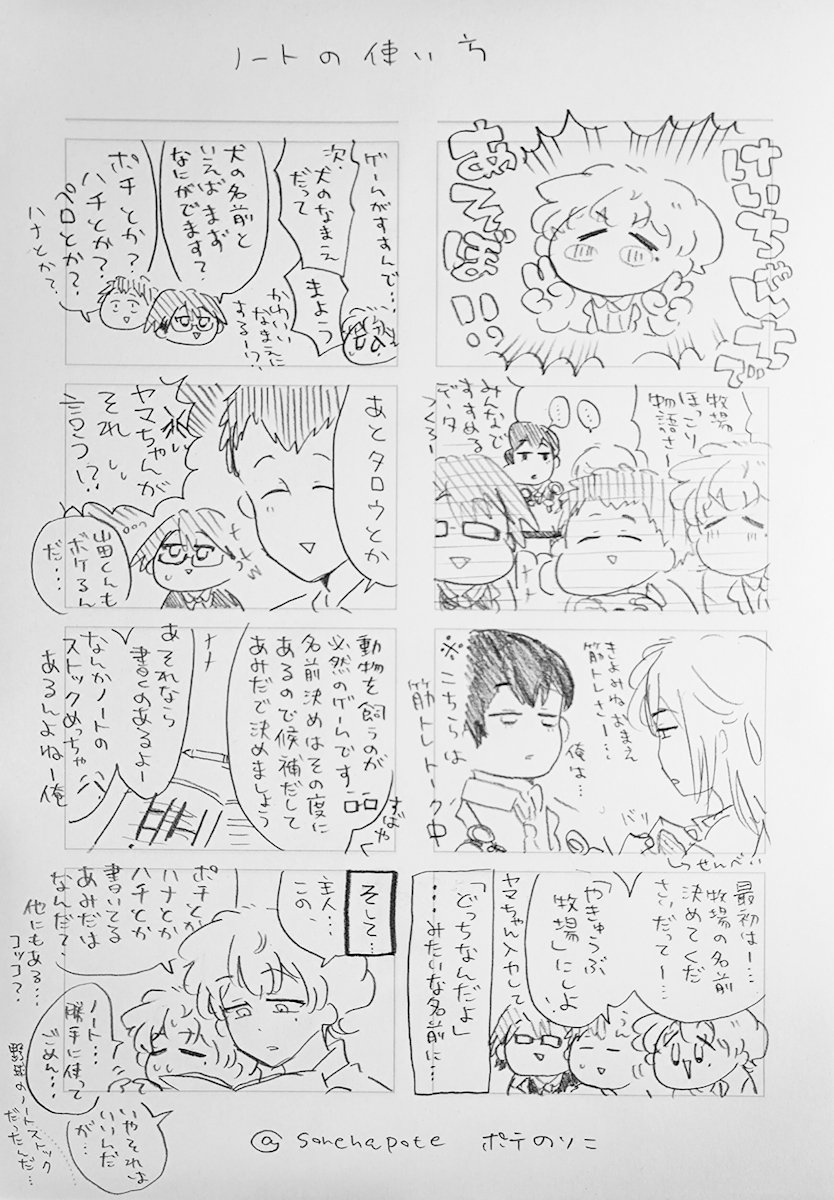 ノートの使い方
けいちゃんちで
あそぼ!!
牧場
ほっこり
物語さー
みんなで
すすめる
データ
つくろー
きよみねおまえ
筋トレさー…
俺は…
バリ
※こちらは
筋トレトーク中
しょうせんべい
最初はー…
牧場の名前
決めてくだ
さいだってー…
「やきゅうぶ
牧場」にしよ
うん
ヤマちゃん入力して
「どっちなんだよ」
…みたいな名前に…
ゲームがすすんで…
次、犬のなまえ
だって
まよう
かわいい
なまえに
するー!?
犬の名前と
いえばまず
なにがでます?
ポチとか?
ハチとか?
ペロとか?
ハナとか?
あとタロウとか
ヤマちゃんが
それ
言う!?
山田くんも
ボケるん
だ…
動物を飼うのが
必然のゲームです
名前決めはその度に
あるので候補だして
あみだで決めましょう
すばや
あそれなら
書くのあるよー
なんかノートの
ストックめっちゃ
あるんよねー俺
そして…
主人…
この、
ポチとか
ハナとか
ハチとか
書いてる
あみだは
なんだて、
他にもある…
コッコ?
ノート…
勝手に使って
ごめん…
いやそれは
いいんだ
が…
野球のノートストック
だったんだ…
@sonchapote ポテのソニ